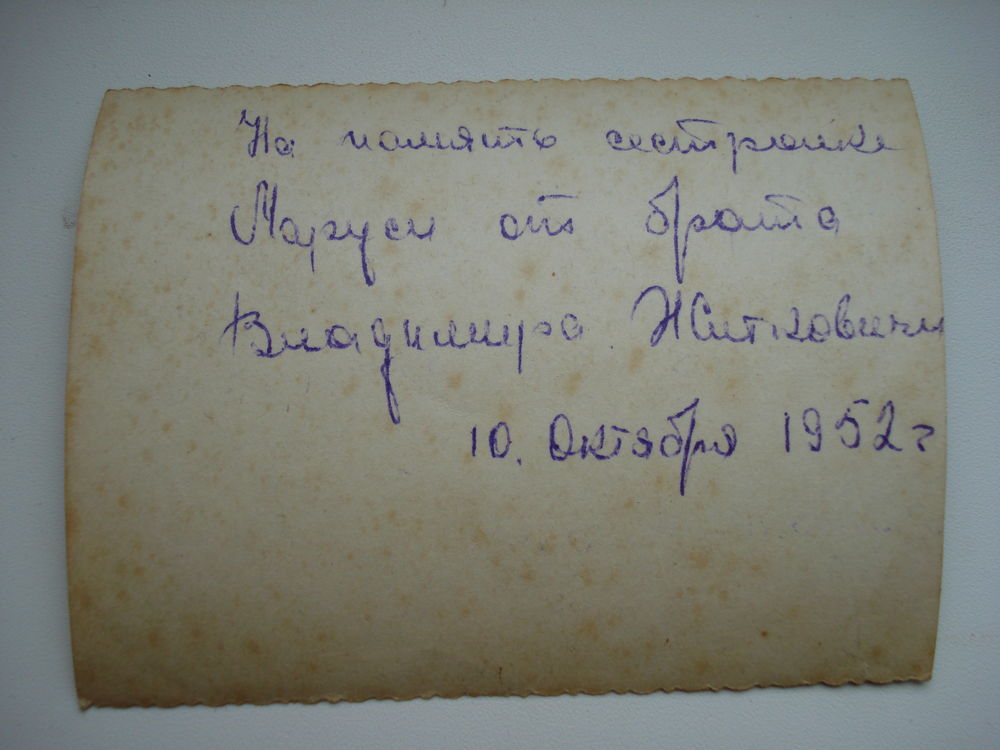 На память сестрёнке
Маруси от брата
Владимира Житковичи
10. Октября 1952 г